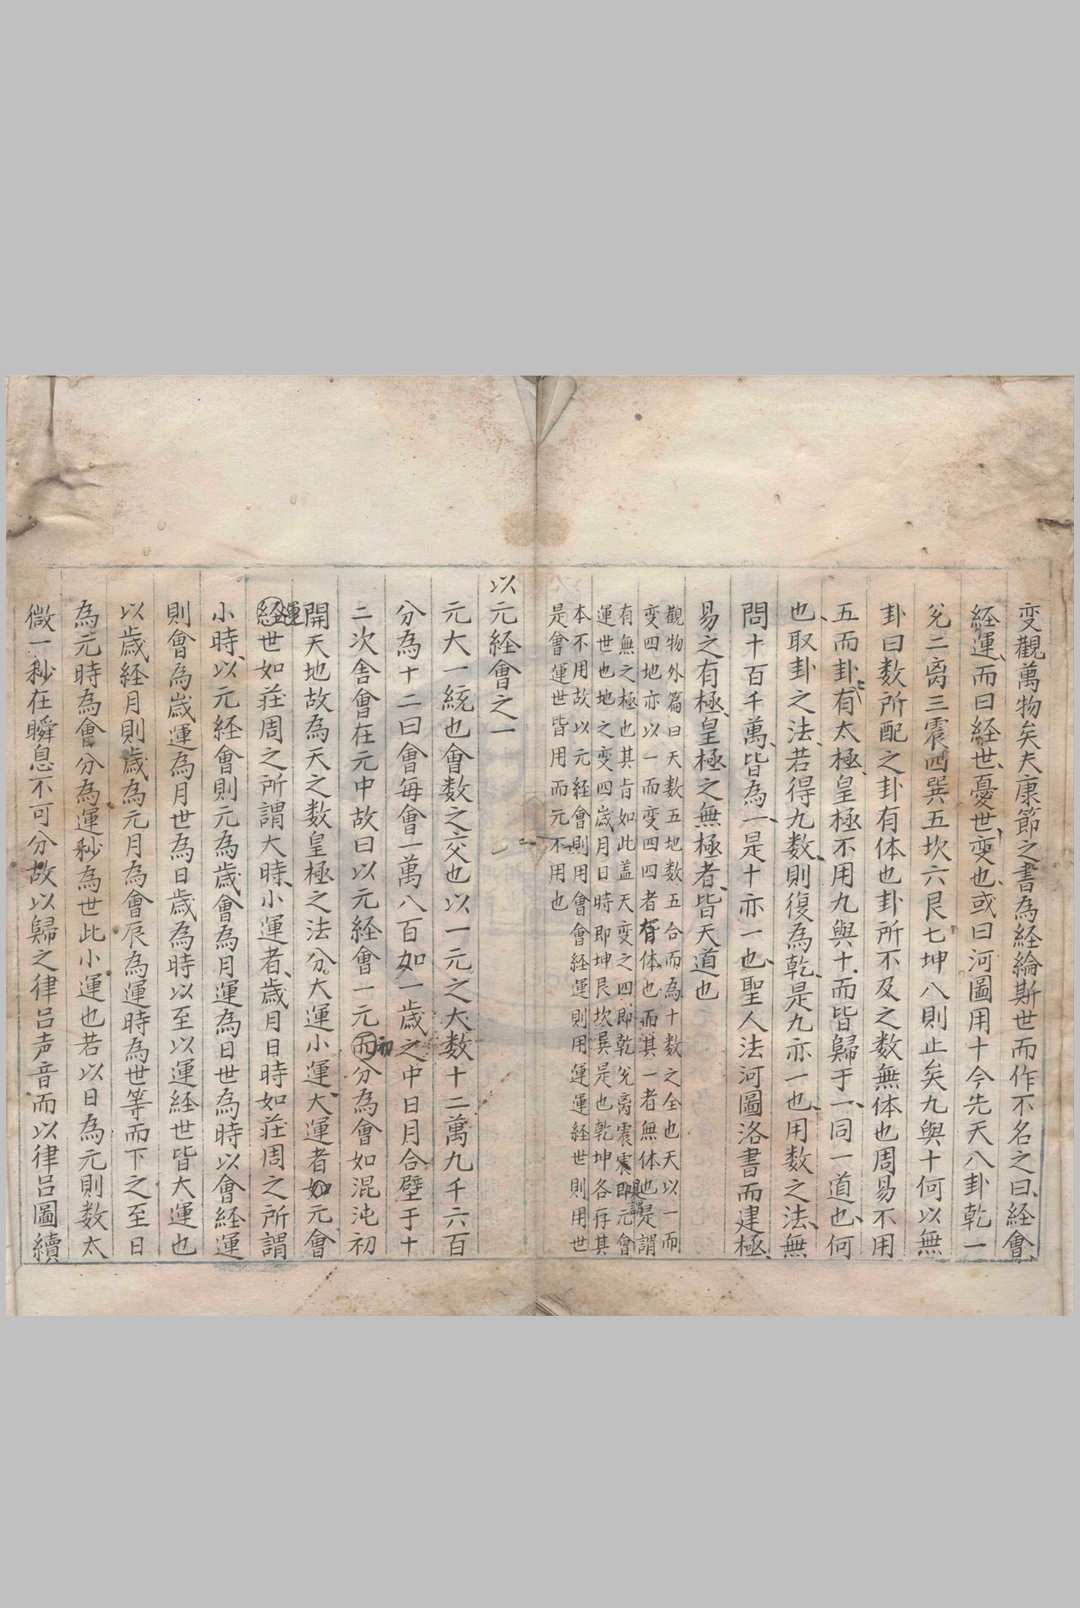 变觀萬物矣夫康節之書為経綸斯世而作不名之曰経會
経運而曰経世憂世变也或曰河圖用十今先天八卦乾一
兊二离三震四巽五坎六艮七坤八則止矣九與十何以無
卦曰数所配之卦有体也卦所不及之数無体也周易不用
五而卦有太極皇極不用九與十而皆歸于一同一道也何
也取卦之法若得九数則復為乾是九亦一也用数之法無
問十百千萬皆為一是十亦一也聖人法河圖洛書而建極
易之有極皇極之無極者皆天道也
觀物外篇曰天数五地数五合而為十数之全也天以一而
变四地亦以一而变四四者有体也而其一者無体也是謂
有無之極也其旨如此盖天变之四即乾兊离震即元會
運世也地之变四歳月日時即坤艮坎巽是也乾坤各存其
本不用故以元経會則用會會経運則用運運経世則用世
是會運世皆用而元不用也
以元経會之一
元大一統也會数之交也以一元之大数十二萬九千六百
分為十二曰會每會一萬八百如一歳之中日月合壁于十
二次舍會在元中故曰以元経會一元而初分為會如混沌初
開天地故為天之数皇極之法分大運小運大運者如元會
経運世如莊周之所謂大時小運者歳月日時如莊周之所謂
小時以元経會則元為歳會為月運為日世為時以會経運
則會為歳運為月世為日歳為時以至以運経世皆大運也
以歳経月則歳為元月為會辰為運時為世等而下之至日
為元時為會分為運秒為世此小運也若以日為元則数太
微一秒在瞬息不可分故以歸之律呂声音而以律呂圖續